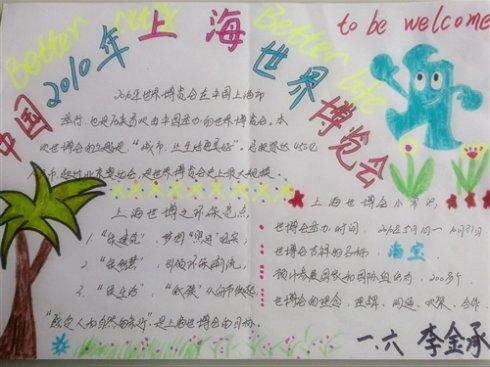 Better city
Better life
to be welcome
中国2010年上海世界博览会
2010年世界博览会在中国上海市
举行，也是历来首次由中国举办的世界博览会。本
次世博会的主题是，“城市，让生活更美好”。总投资达450亿
人民币，超过北京奥运会，是世界博览会史上最大规模。
上海世博之环保亮点，
1. “绿建筑”，
2. “绿智慧”，引领环保新潮流，
3. “绿生活”，“低碳”从细节做起。
“感受人和自然的亲近”是上海世博会的目标。
上海世博会小常识，
世博会举办时间，2010年5月1日一10月31日
世博会吉祥的名称，海宝
预计参展国家和国际组织有，200多个
世博会的理念，理解、沟通、欢聚、合作
一、六 李金承